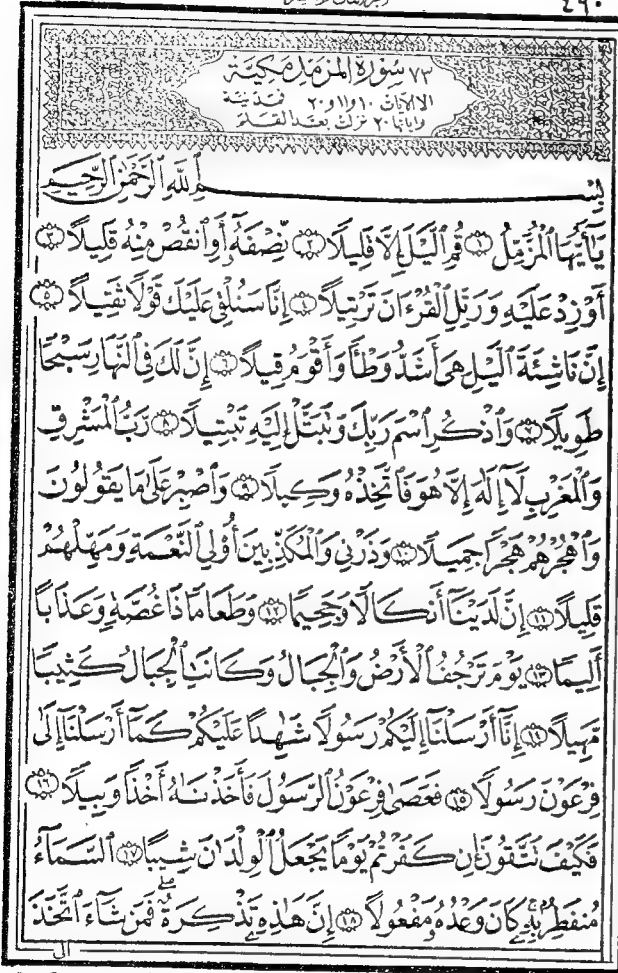 ٤٩٠
٧٣ سُورَةُ الْمُزَّمِّلِ مَكِّيَّة
الا الآيات ١٠ و ١١ و ٢٠ فمدنية
وآياتها ٢٠ نزلت بعد القلم
بِسْمِ ٱللَّهِ ٱلرَّحْمَٰنِ ٱلرَّحِيمِ
يَٰٓأَيُّهَا ٱلْمُزَّمِّلُ ١ قُمِ ٱلَّيْلَ إِلَّا قَلِيلًا ٢ نِّصْفَهُۥٓ أَوِ ٱنقُصْ مِنْهُ قَلِيلًا ٣
أَوْ زِدْ عَلَيْهِ وَرَتِّلِ ٱلْقُرْءَانَ تَرْتِيلًا ٤ إِنَّا سَنُلْقِى عَلَيْكَ قَوْلًا ثَقِيلًا ٥
إِنَّ نَاشِئَةَ ٱلَّيْلِ هِىَ أَشَدُّ وَطْـًٔا وَأَقْوَمُ قِيلًا ٦ إِنَّ لَكَ فِى ٱلنَّهَارِ سَبْحًا
طَوِيلًا ٧ وَٱذْكُرِ ٱسْمَ رَبِّكَ وَتَبَتَّلْ إِلَيْهِ تَبْتِيلًا ٨ رَّبُّ ٱلْمَشْرِقِ
وَٱلْمَغْرِبِ لَآ إِلَٰهَ إِلَّا هُوَ فَٱتَّخِذْهُ وَكِيلًا ٩ وَٱصْبِرْ عَلَىٰ مَا يَقُولُونَ
وَٱهْجُرْهُمْ هَجْرًا جَمِيلًا ١٠ وَذَرْنِى وَٱلْمُكَذِّبِينَ أُو۟لِى ٱلنَّعْمَةِ وَمَهِّلْهُمْ
قَلِيلًا ١١ إِنَّ لَدَيْنَآ أَنكَالًا وَجَحِيمًا ١٢ وَطَعَامًا ذَا غُصَّةٍ وَعَذَابًا
أَلِيمًا ١٣ يَوْمَ تَرْجُفُ ٱلْأَرْضُ وَٱلْجِبَالُ وَكَانَتِ ٱلْجِبَالُ كَثِيبًا
مَّهِيلًا ١٤ إِنَّآ أَرْسَلْنَآ إِلَيْكُمْ رَسُولًا شَٰهِدًا عَلَيْكُمْ كَمَآ أَرْسَلْنَآ إِلَىٰ
فِرْعَوْنَ رَسُولًا ١٥ فَعَصَىٰ فِرْعَوْنُ ٱلرَّسُولَ فَأَخَذْنَٰهُ أَخْذًا وَبِيلًا ١٦
فَكَيْفَ تَتَّقُونَ إِن كَفَرْتُمْ يَوْمًا يَجْعَلُ ٱلْوِلْدَٰنَ شِيبًا ١٧ ٱلسَّمَآءُ
مُنفَطِرٌۢ بِهِۦ كَانَ وَعْدُهُۥ مَفْعُولًا ١٨ إِنَّ هَٰذِهِۦ تَذْكِرَةٌ فَمَن شَآءَ ٱتَّخَذَ
الى